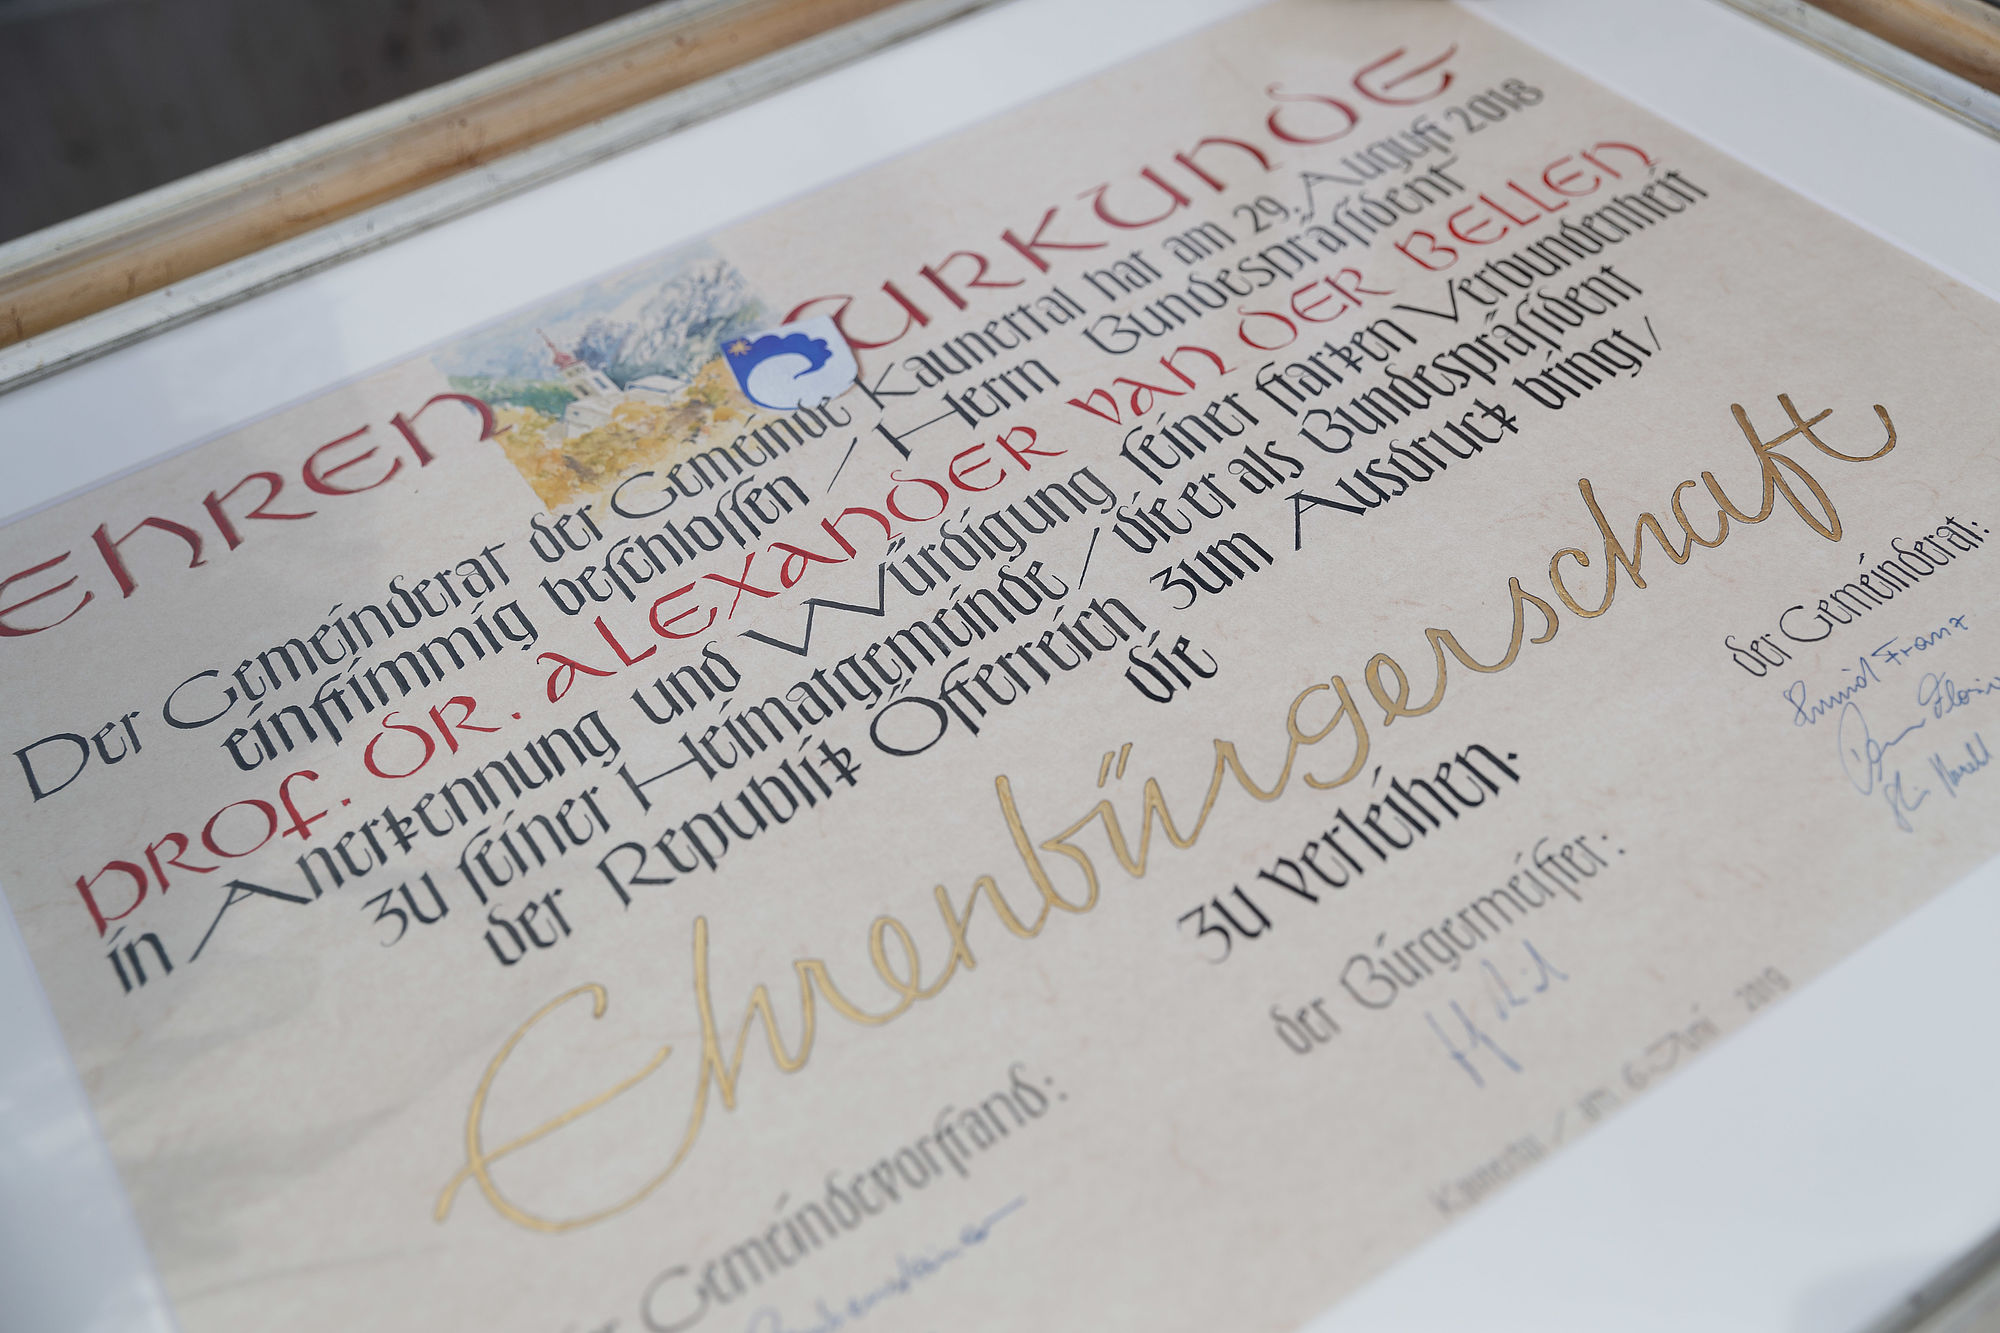 EHREN URKUNDE
Der Gemeinderat der Gemeinde Kaunertal hat am 29. August 2018
einstimmig beschlossen / Herrn Bundespräsident
PROF. DR. ALEXANDER VAN DER BELLEN
in Anerkennung und Würdigung seiner starken Verbundenheit
zu seiner Heimatgemeinde / die er als Bundespräsident
der Republik Österreich zum Ausdruck bringt /
die
Ehrenbürgerschaft
zu verleihen.
Gemeindevorstand: der Bürgermeister: der Gemeinderat:
Franz
Kaunertal / am 6. Juni 2019